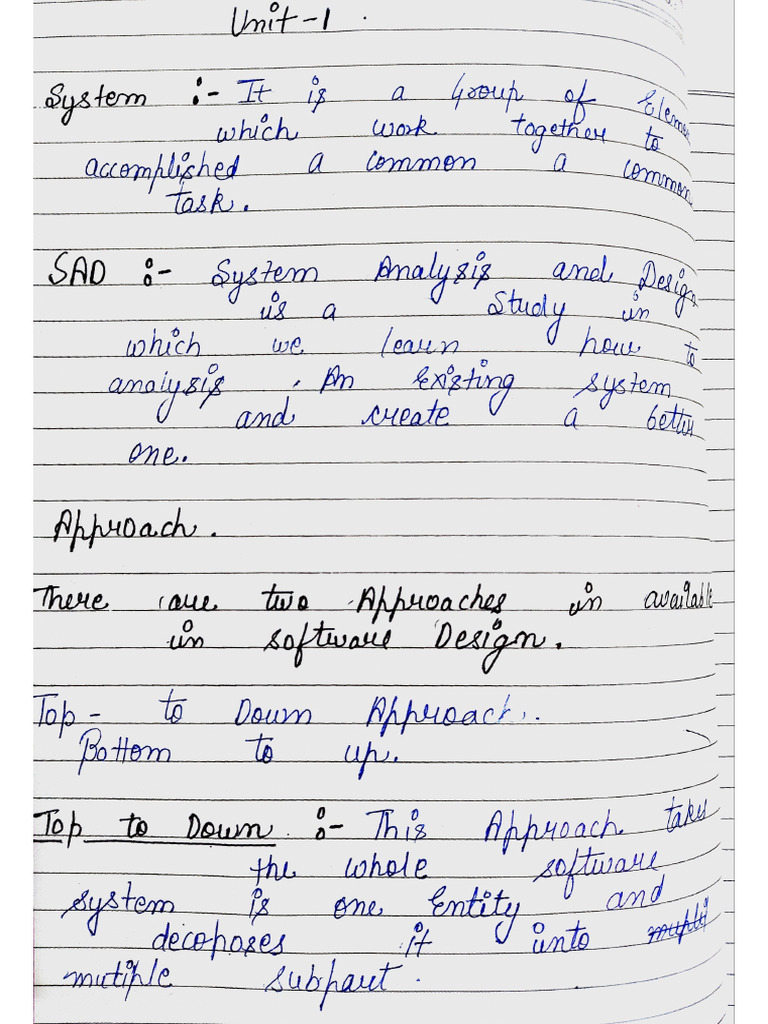 Unit-1.
System :- It is a Group of Elemen
which work together to
accomplished a common a common
task.
SAD :- System Analysis and Design
is a Study in
which we learn how to
analysis. An Existing system
and create a better
one.
Approach.
There are two Approaches in available
in software Design.
Top - to Down Approach.
Bottom to up.
Top to Down :- This Approach takes
the whole software
system is one Entity and
decoposes it into
mutiple subpart.